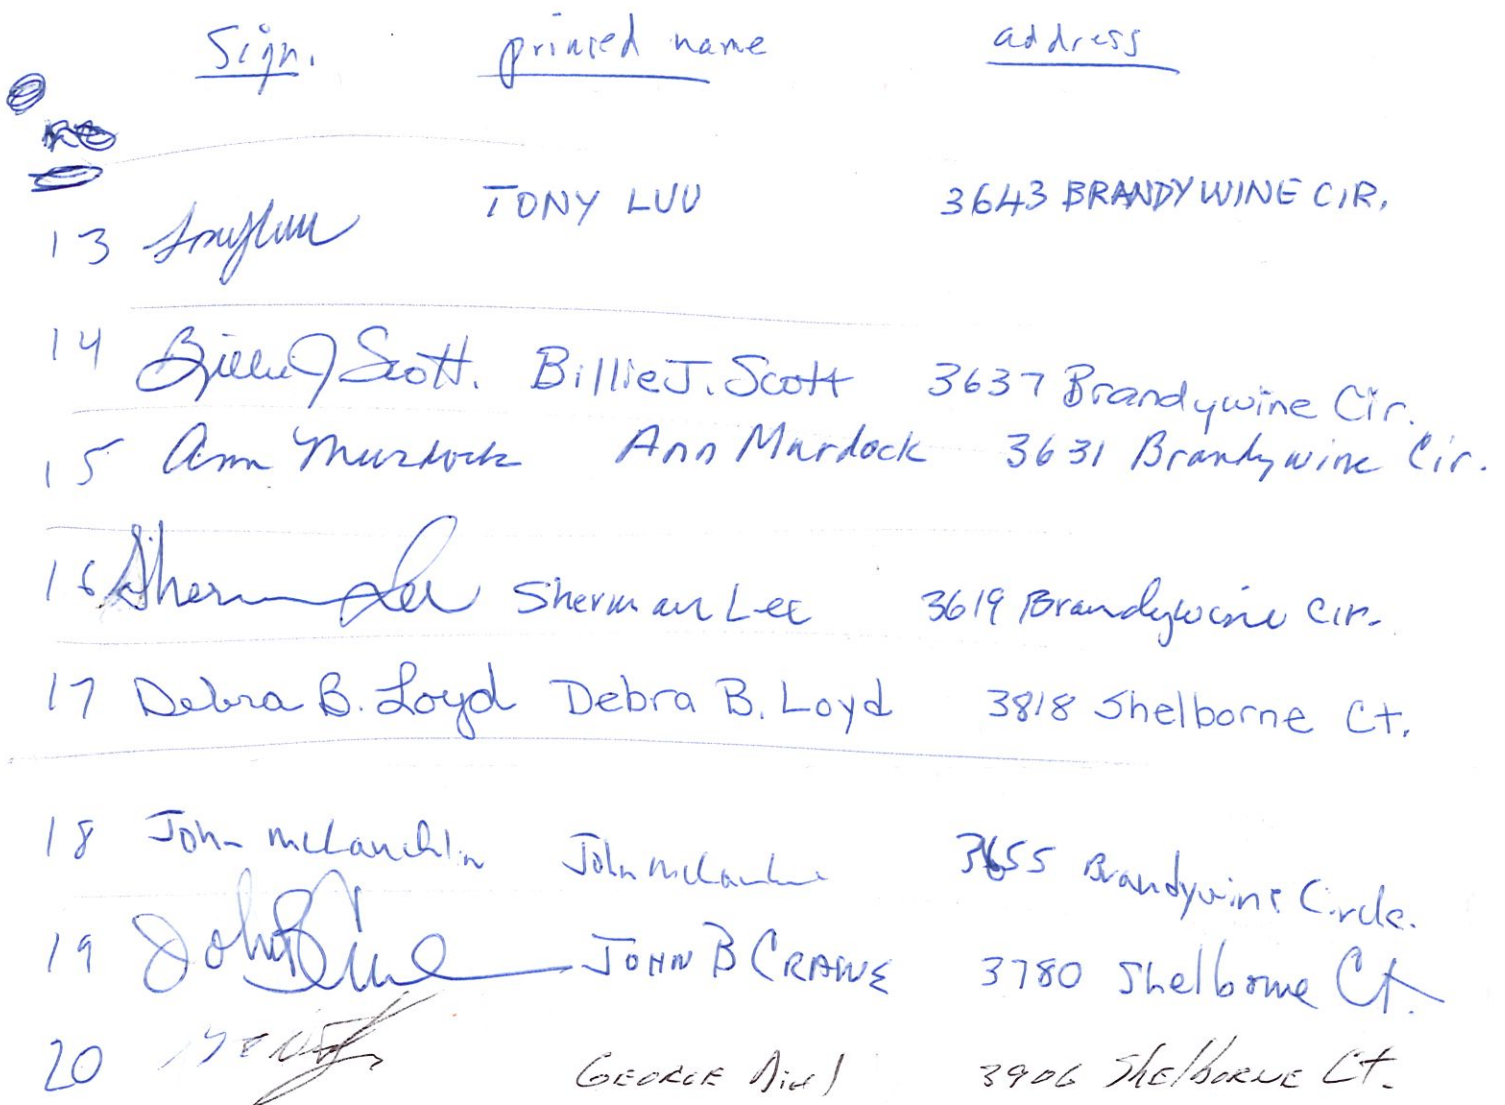 Sign. printed name address
13 TONY LUU 3643 BRANDYWINE CIR.
14 Billie J Scott. Billie J. Scott 3637 Brandywine Cir.
15 Ann Murdock Ann Murdock 3631 Brandywine Cir.
16 Sherman Lee Sherman Lee 3619 Brandywine Cir.
17 Debra B. Loyd Debra B. Loyd 3818 Shelborne Ct.
18 John McLauchlin John 3655 Brandywine Circle.
19 John B Crane JOHN B CRANE 3780 Shelborne Ct.
20 GEORGE 3906 Shelborne Ct.